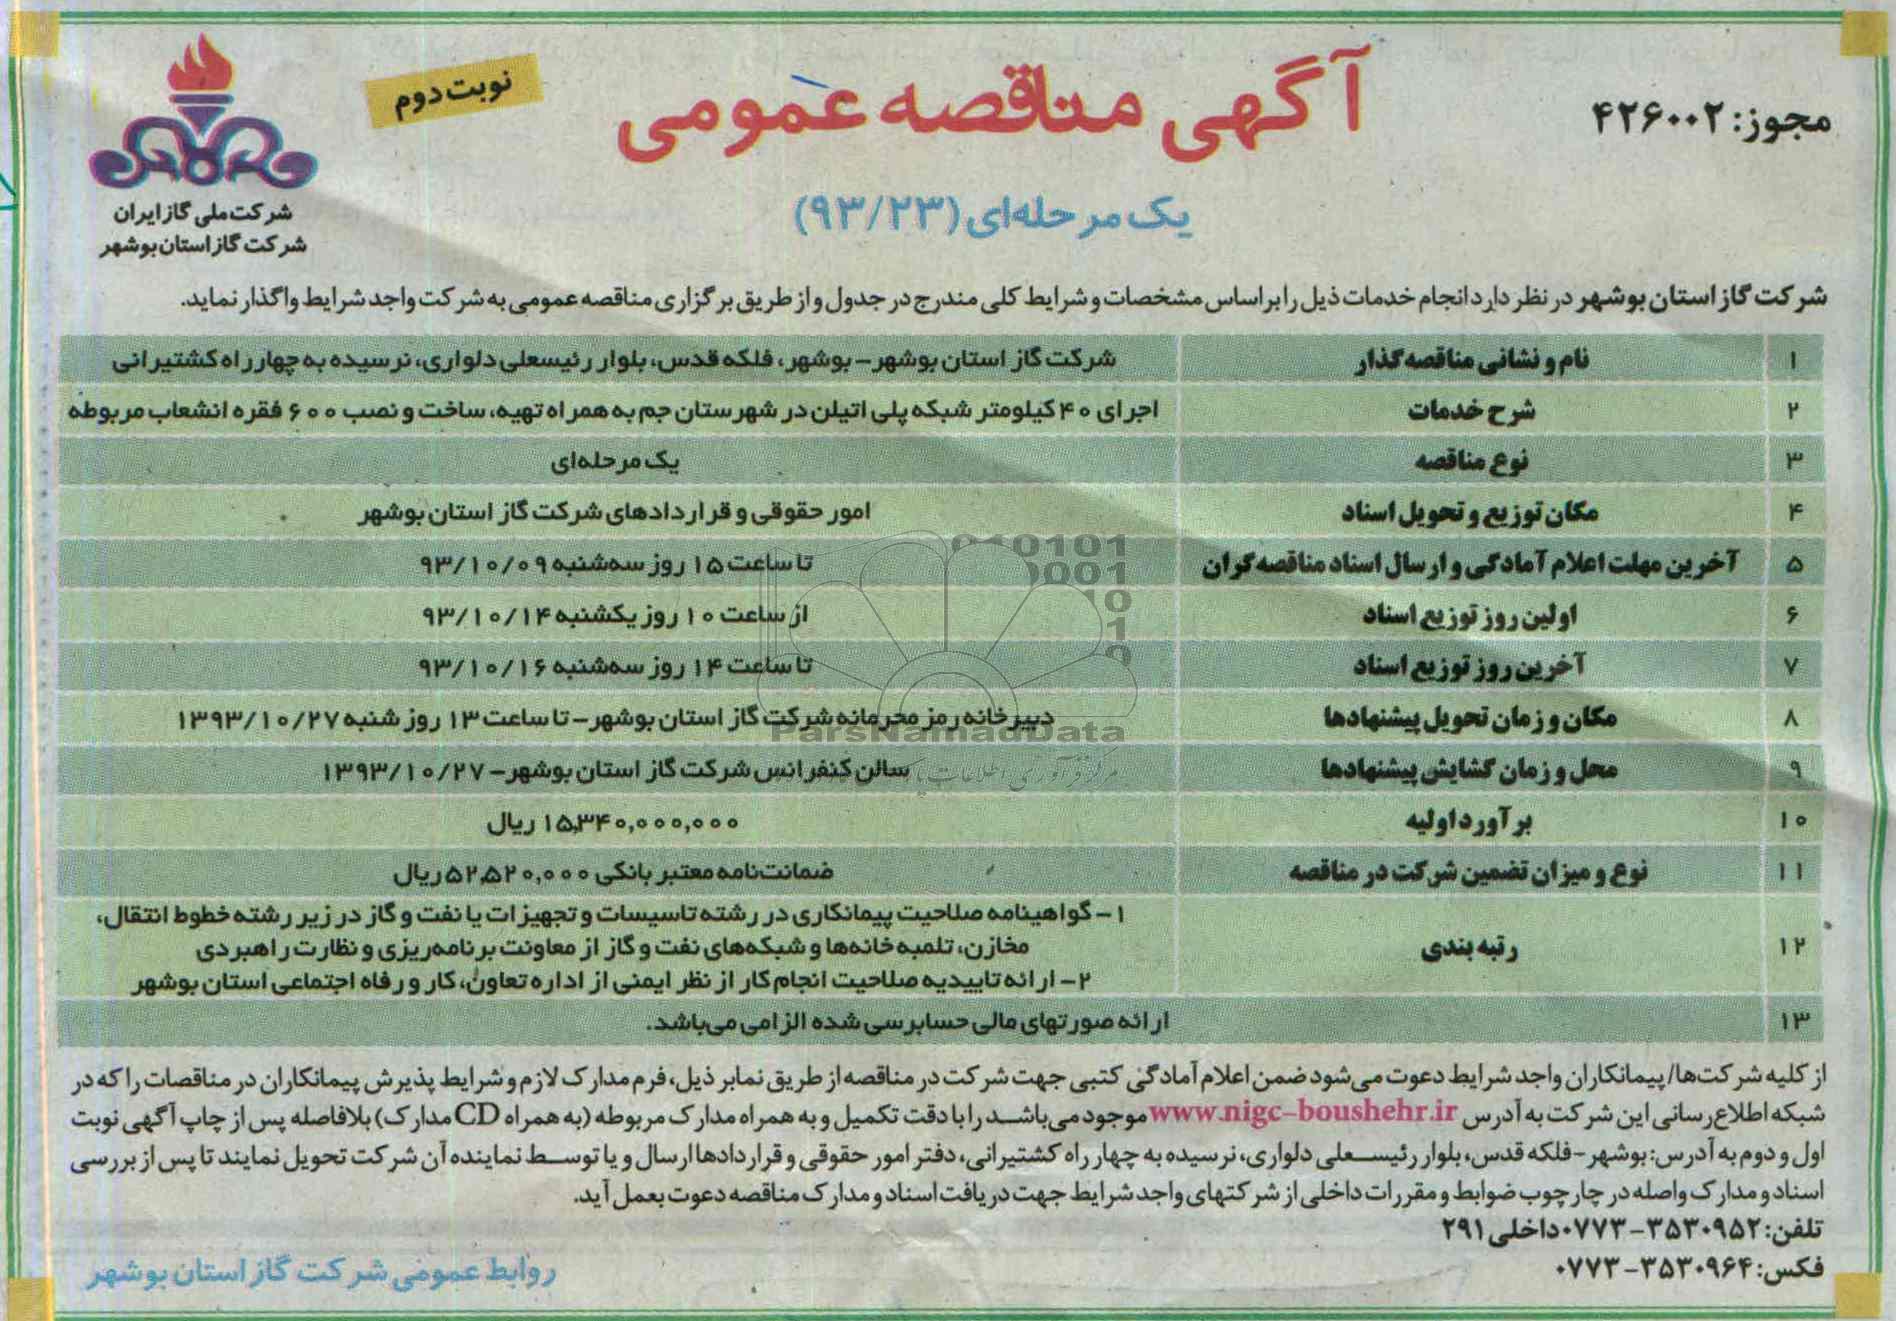 مجوز: ۴۲۶۰۰۲
آگهی مناقصه عمومی
نوبت دوم
یک مرحله‌ای (۹۳/۲۳)
شرکت ملی گاز ایران
شرکت گاز استان بوشهر
شرکت گاز استان بوشهر در نظر دارد انجام خدمات ذیل را براساس مشخصات و شرایط کلی مندرج در جدول و از طریق برگزاری مناقصه عمومی به شرکت واجد شرایط واگذار نماید.
۱ نام و نشانی مناقصه‌گذار شرکت گاز استان بوشهر- بوشهر، فلکه قدس، بلوار رئیسعلی دلواری، نرسیده به چهارراه کشتیرانی
۲ شرح خدمات اجرای ۴۰ کیلومتر شبکه پلی اتیلن در شهرستان جم به همراه تهیه، ساخت و نصب ۶۰۰ فقره انشعاب مربوطه
۳ نوع مناقصه یک مرحله‌ای
۴ مکان توزیع و تحویل اسناد امور حقوقی و قراردادهای شرکت گاز استان بوشهر
۵ آخرین مهلت اعلام آمادگی و ارسال اسناد مناقصه‌گران تا ساعت ۱۵ روز سه‌شنبه ۹۳/۱۰/۰۹
۶ اولین روز توزیع اسناد از ساعت ۱۰ روز یکشنبه ۹۳/۱۰/۱۴
۷ آخرین روز توزیع اسناد تا ساعت ۱۴ روز سه‌شنبه ۹۳/۱۰/۱۶
۸ مکان و زمان تحویل پیشنهادها دبیرخانه رمز محرمانه شرکت گاز استان بوشهر- تا ساعت ۱۳ روز شنبه ۱۳۹۳/۱۰/۲۷
۹ محل و زمان گشایش پیشنهادها سالن کنفرانس شرکت گاز استان بوشهر- ۱۳۹۳/۱۰/۲۷
۱۰ برآورد اولیه ۱۵,۳۴۰,۰۰۰,۰۰۰ ریال
۱۱ نوع و میزان تضمین شرکت در مناقصه ضمانت‌نامه معتبر بانکی ۵۲,۵۲۰,۰۰۰ ریال
۱۲ رتبه بندی ۱- گواهینامه صلاحیت پیمانکاری در رشته تاسیسات و تجهیزات یا نفت و گاز در زیر رشته خطوط انتقال،
مخازن، تلمبه خانه‌ها و شبکه‌های نفت و گاز از معاونت برنامه‌ریزی و نظارت راهبردی
۲- ارائه تاییدیه صلاحیت انجام کار از نظر ایمنی از اداره تعاون، کار و رفاه اجتماعی استان بوشهر
۱۳ ارائه صورتهای مالی حسابرسی شده الزامی می‌باشد.
از کلیه شرکت‌ها/ پیمانکاران واجد شرایط دعوت می‌شود ضمن اعلام آمادگی کتبی جهت شرکت در مناقصه از طریق نمابر ذیل، فرم مدارک لازم و شرایط پذیرش پیمانکاران در مناقصات را که در
شبکه اطلاع‌رسانی این شرکت به آدرس www.nigc-boushehr.ir موجود می‌باشد را با دقت تکمیل و به همراه مدارک مربوطه (به همراه CD مدارک) بلافاصله پس از چاپ آگهی نوبت
اول و دوم به آدرس: بوشهر- فلکه قدس، بلوار رئیسعلی دلواری، نرسیده به چهارراه کشتیرانی، دفتر امور حقوقی و قراردادها ارسال و یا توسط نماینده آن شرکت تحویل نمایند تا پس از بررسی
اسناد و مدارک واصله در چارچوب ضوابط و مقررات داخلی از شرکتهای واجد شرایط جهت دریافت اسناد و مدارک مناقصه دعوت بعمل آید.
تلفن: ۳۵۳۰۹۵۲-۰۷۷۳ داخلی ۲۹۱
فکس: ۳۵۳۰۹۶۴-۰۷۷۳
روابط عمومی شرکت گاز استان بوشهر
ParsNamadData